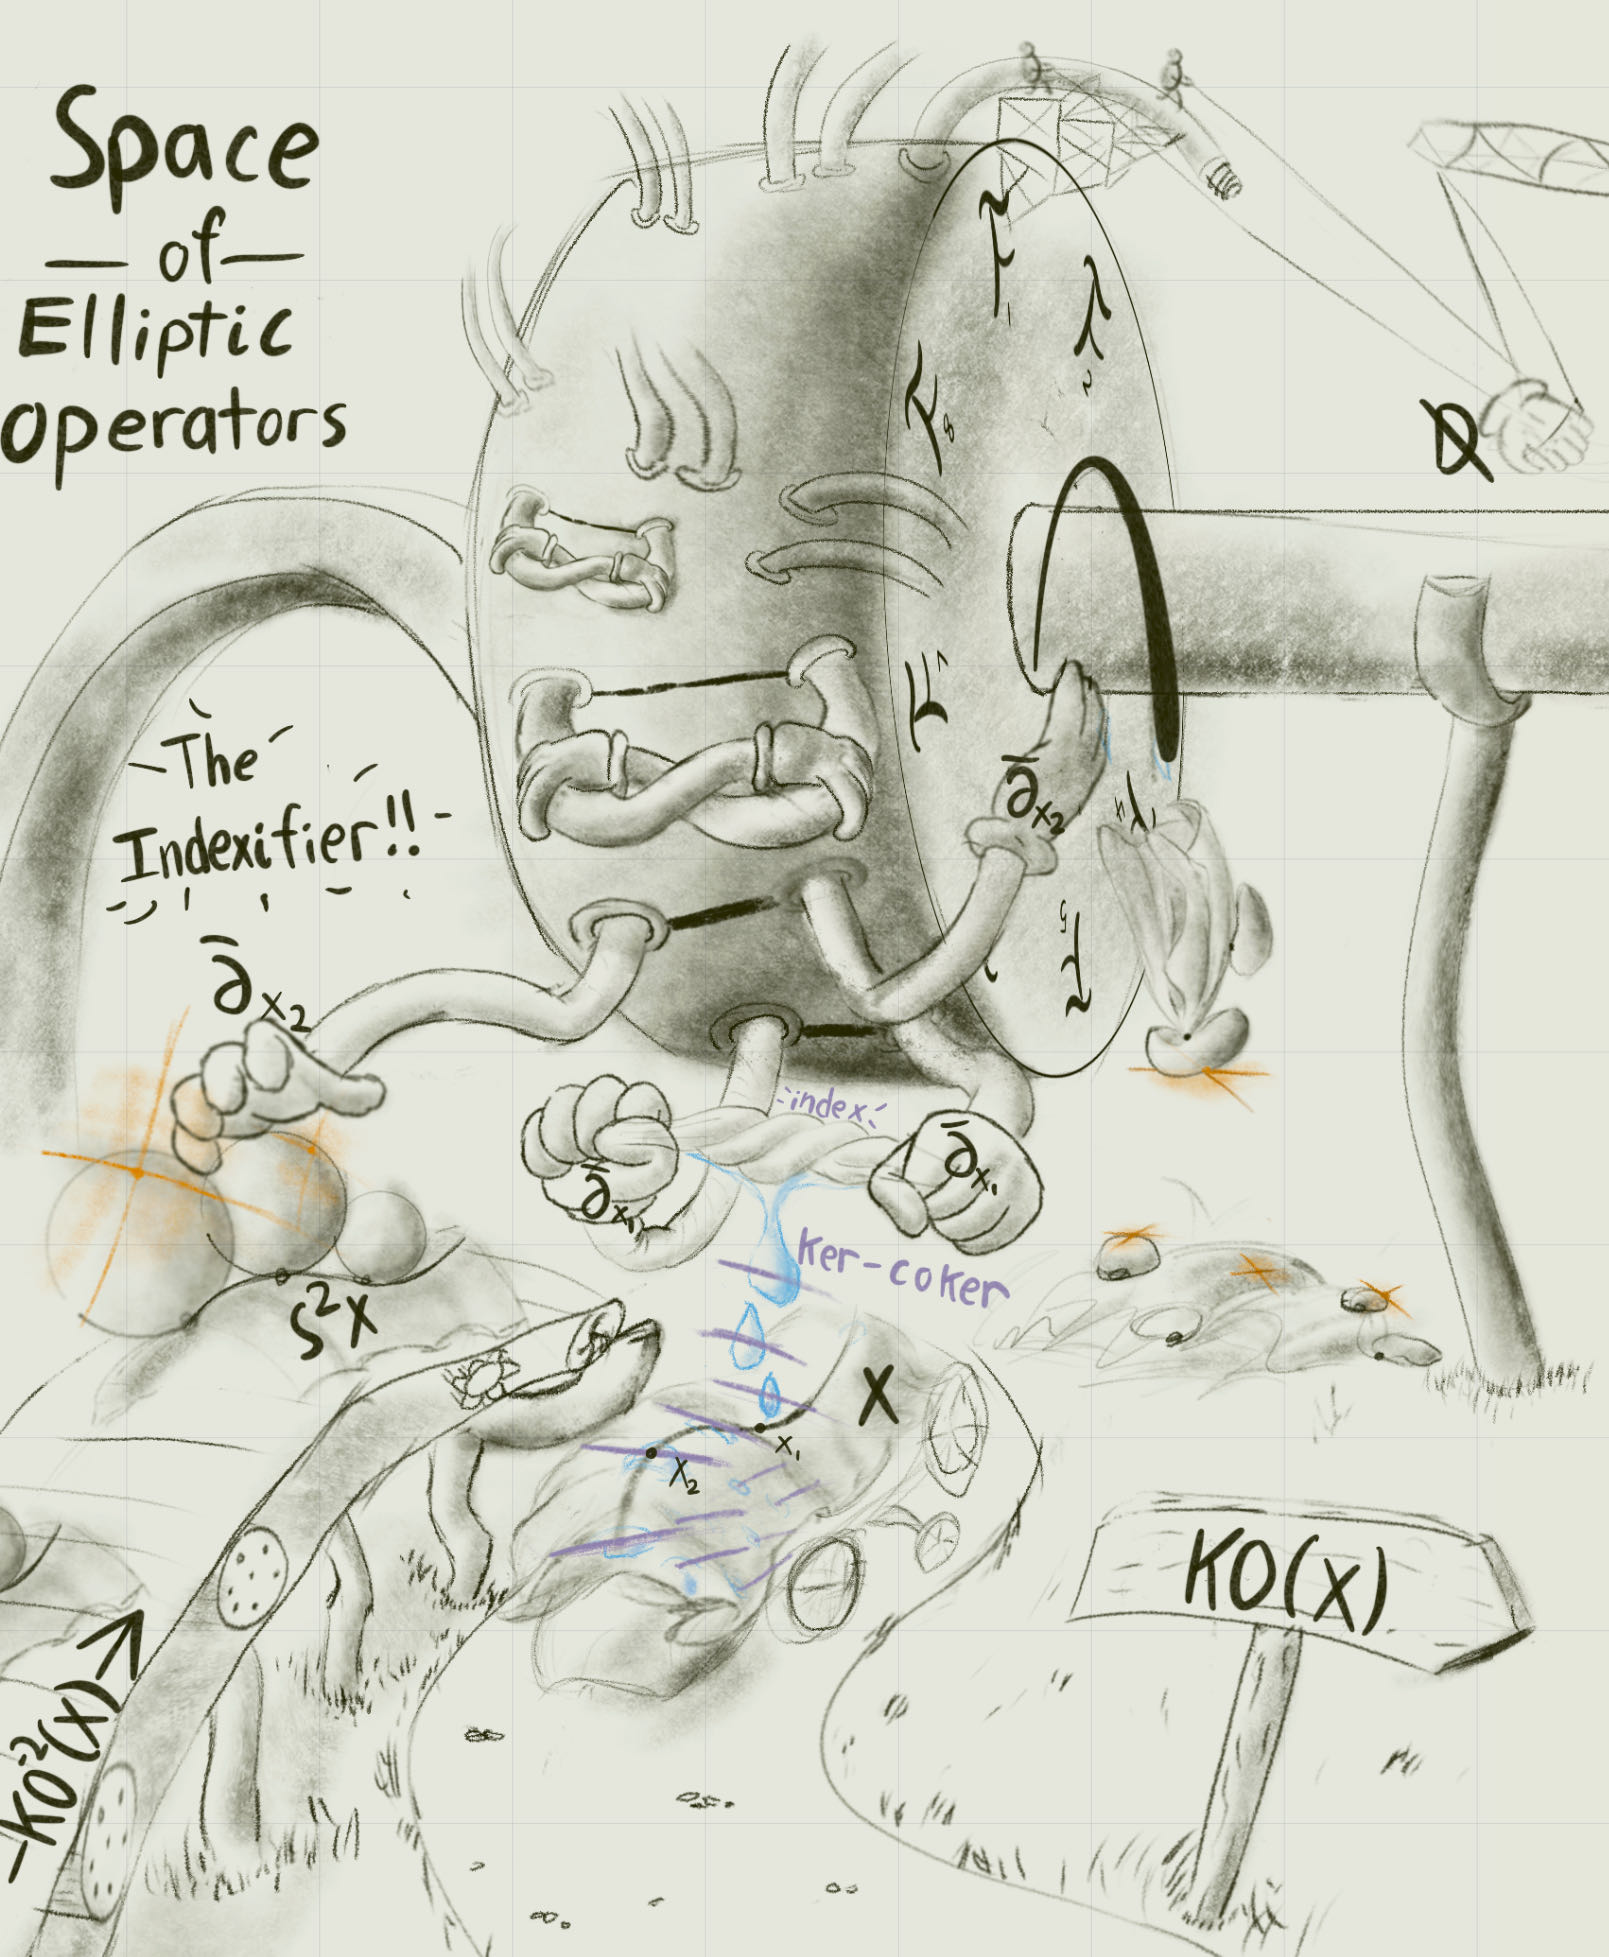 Space
— of —
Elliptic
Operators
The
Indexifier!!
∂̄x₂
∂̄x₂
index
∂̄x₁
∂̄x₁
ker-coker
S²X
X
x₁
x₂
KO(X)
KO⁻²(X)